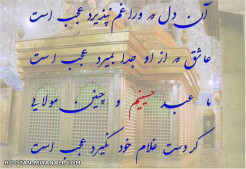 آن دل که ورا غم نپذیرد عجب است
عاشق که از او جدا بمیرد عجب است
ما عبد حسینیم و چنین مولایی
گر دست غلام خود نگیرد عجب است
HOOTAN.MIYANALI.COM